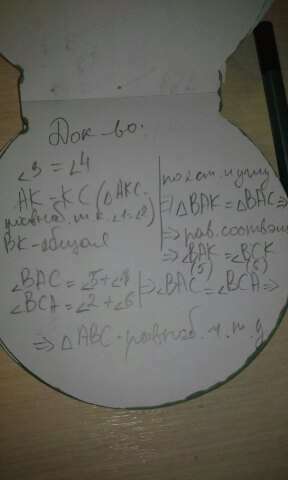 Док-во.
∠3 = ∠4
AK = KC (△AKC-
равноб. т.к. ∠1=∠2)
BK - общая
по 2 ст. и углу
⇒ △BAK = △BAC ⇒
⇒ рав. соответ
⇒ ∠BAK = ∠BCK
(5) (6)
∠BAC = ∠5+∠1
∠BCA = ∠2+∠6
⇒ ∠BAC = ∠BCA ⇒
⇒ △ABC - равноб. ч.т.д